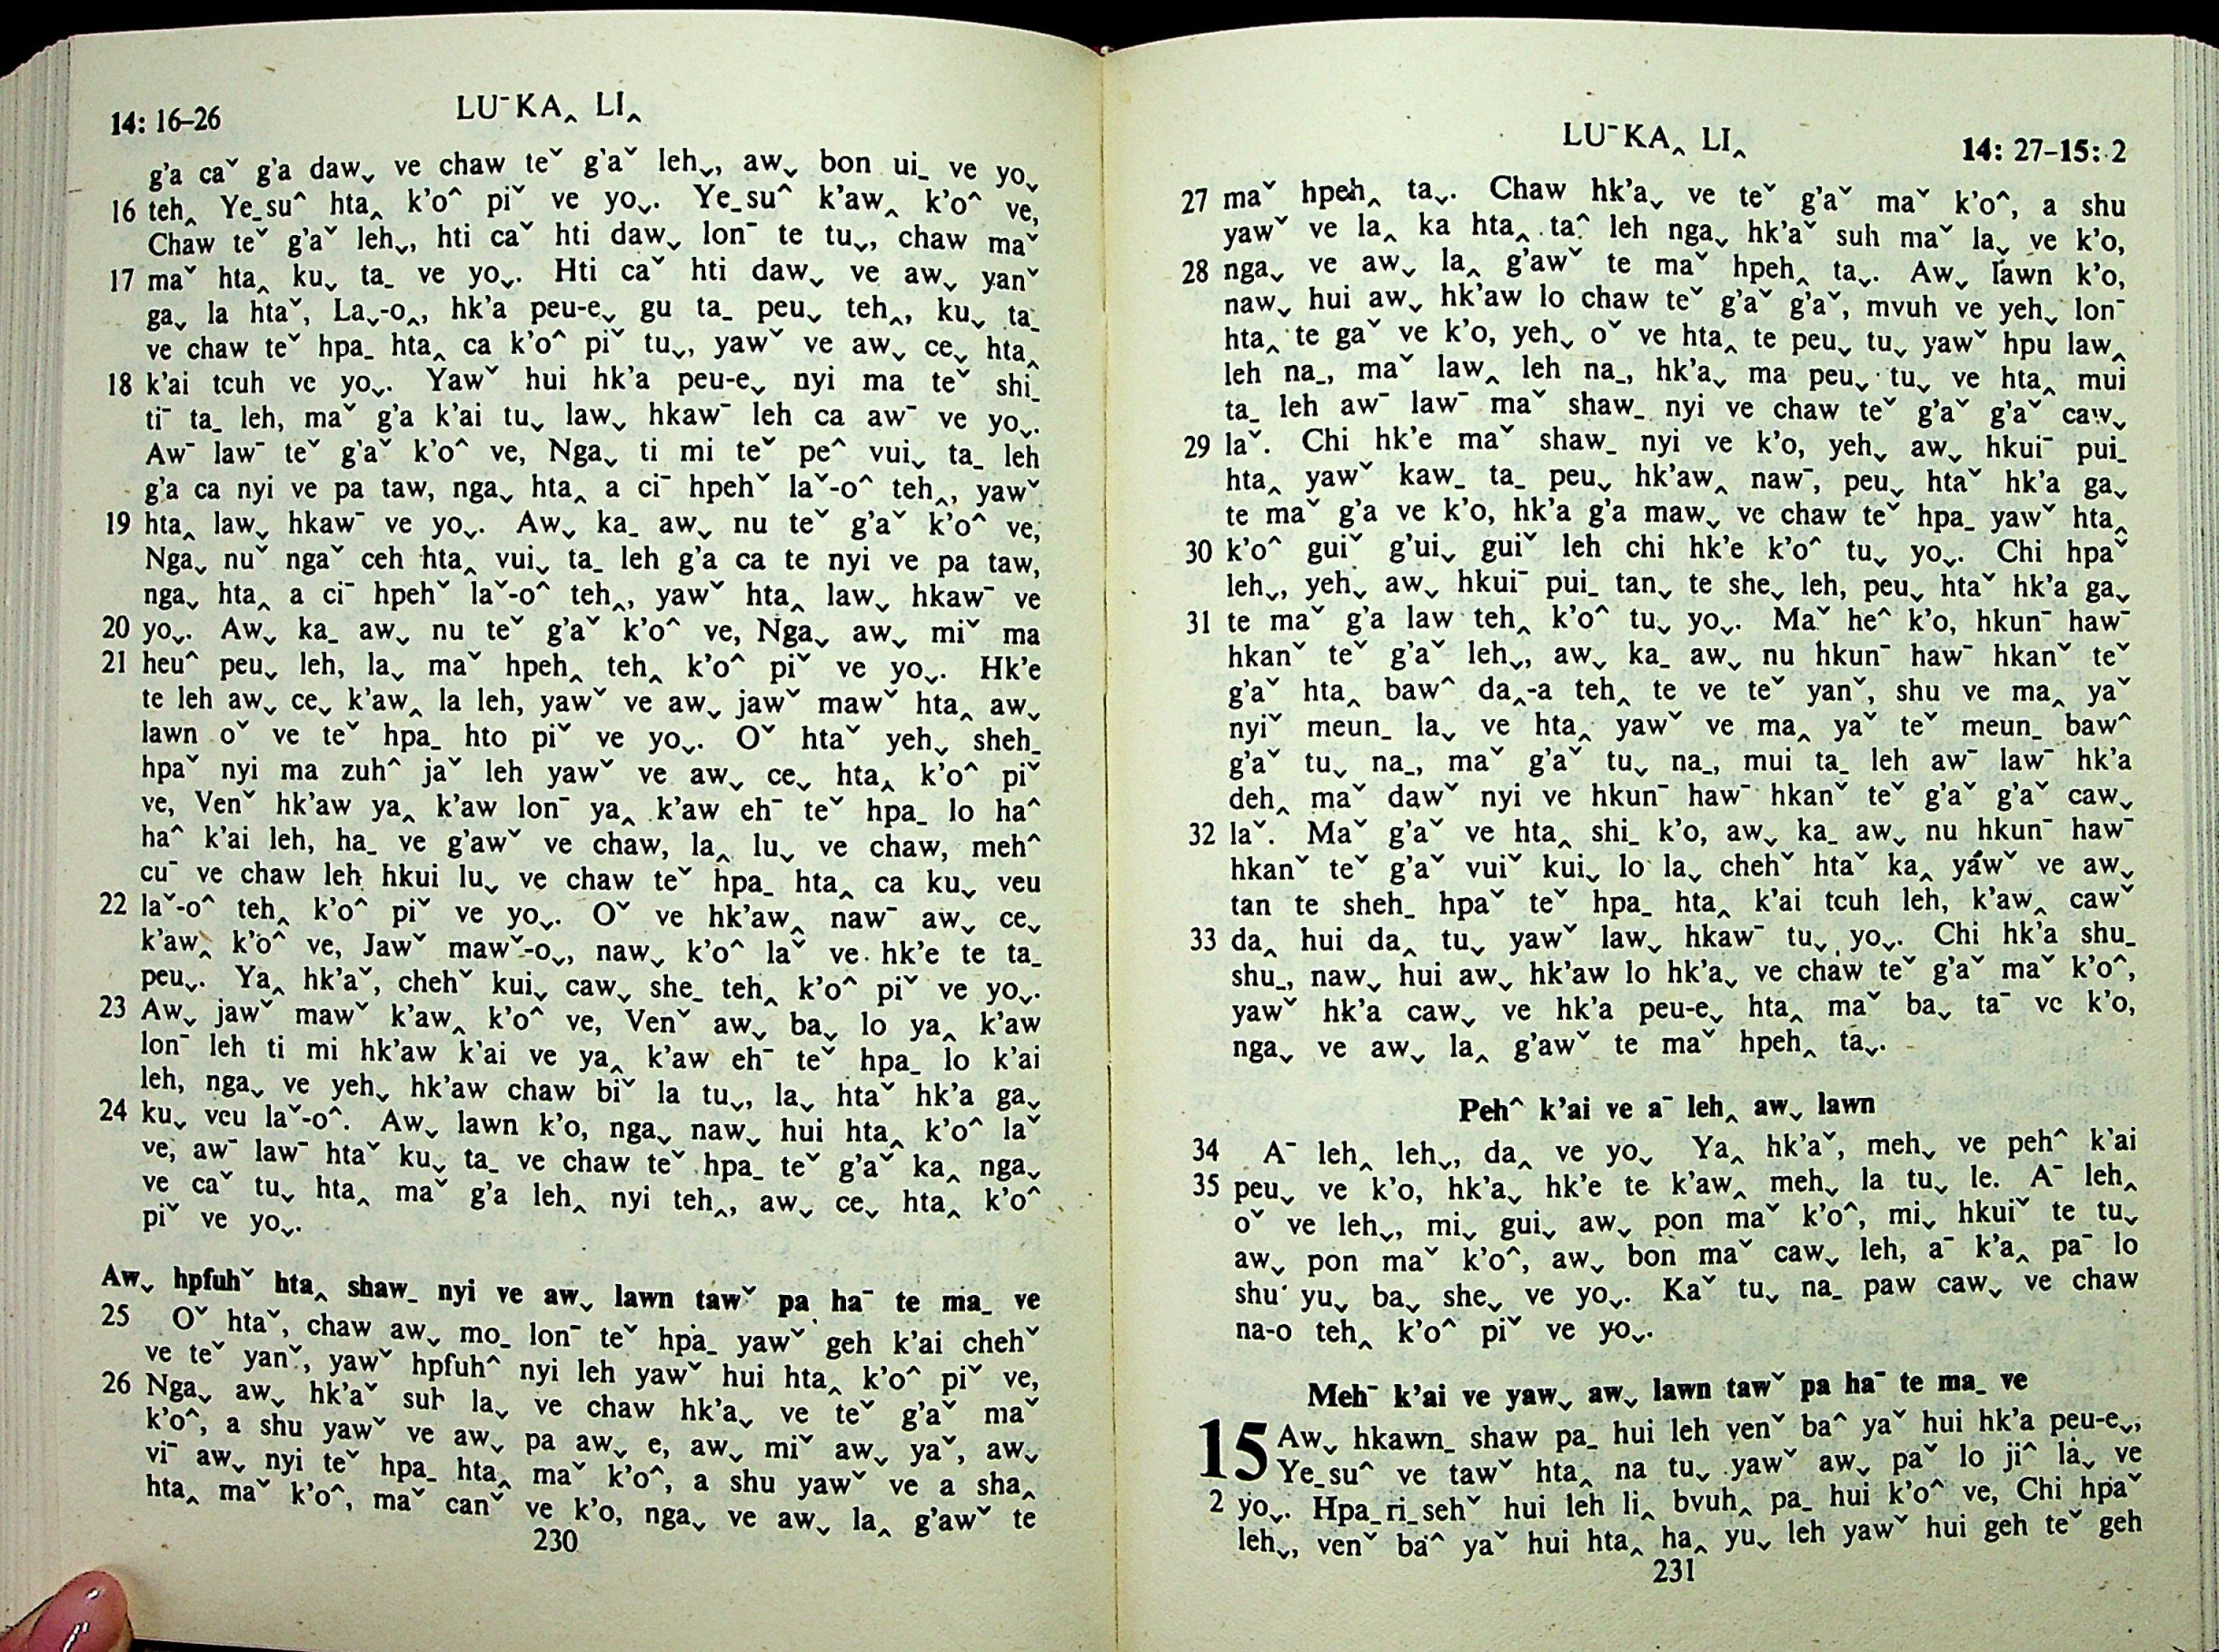 14: 16–26
LUˉKA‸ LI‸
g'a caˇ g'a daw⌄ ve chaw teˇ g'aˇ leh⌄, aw⌄ bon ui_ ve yo⌄
16 teh‸ Ye_suˆ hta‸ k'oˆ piˇ ve yo⌄. Ye_suˆ k'aw‸ k'oˆ ve,
Chaw teˇ g'aˇ leh⌄, hti caˇ hti daw⌄ lonˉ te tu⌄, chaw maˇ
17 maˇ hta‸ ku⌄ ta_ ve yo⌄. Hti caˇ hti daw⌄ ve aw⌄ yanˇ
ga⌄ la htaˇ, La⌄-o‸, hk'a peu-e⌄ gu ta_ peu⌄ teh‸, ku⌄ ta_
ve chaw teˇ hpa_ hta‸ ca k'oˆ piˇ tu⌄, yawˇ ve aw⌄ ce⌄ hta‸
18 k'ai tcuh ve yo⌄. Yawˇ hui hk'a peu-e⌄ nyi ma teˇ shi_
tiˉ ta_ leh, maˇ g'a k'ai tu⌄ law⌄ hkawˉ leh ca awˉ ve yo⌄.
Awˉ lawˉ teˇ g'aˇ k'oˆ ve, Nga⌄ ti mi teˇ peˆ vui⌄ ta_ leh
g'a ca nyi ve pa taw, nga⌄ hta‸ a ciˉ hpehˇ laˇ-oˆ teh‸, yawˇ
19 hta‸ law⌄ hkawˉ ve yo⌄. Aw⌄ ka_ aw⌄ nu teˇ g'aˇ k'oˆ ve,
Nga⌄ nuˇ ngaˇ ceh hta‸ vui⌄ ta_ leh g'a ca te nyi ve pa taw,
nga⌄ hta‸ a ciˉ hpehˇ laˇ-oˆ teh‸, yawˇ hta‸ law⌄ hkawˉ ve
20 yo⌄. Aw⌄ ka_ aw⌄ nu teˇ g'aˇ k'oˆ ve, Nga⌄ aw⌄ miˇ ma
21 heuˆ peu⌄ leh, la⌄ maˇ hpeh‸ teh‸ k'oˆ piˇ ve yo⌄. Hk'e
te leh aw⌄ ce⌄ k'aw‸ la leh, yawˇ ve aw⌄ jawˇ mawˇ hta‸ aw⌄
lawn oˇ ve teˇ hpa_ hto piˇ ve yo⌄. Oˇ htaˇ yeh⌄ sheh_
hpaˇ nyi ma zuhˆ jaˇ leh yawˇ ve aw⌄ ce⌄ hta‸ k'oˆ piˇ
ve, Venˇ hk'aw ya‸ k'aw lonˉ ya‸ k'aw ehˉ teˇ hpa_ lo haˆ
haˆ k'ai leh, ha_ ve g'awˇ ve chaw, la‸ lu⌄ ve chaw, mehˆ
cuˉ ve chaw leh hkui lu⌄ ve chaw teˇ hpa_ hta‸ ca ku⌄ veu
22 laˇ-oˆ teh‸ k'oˆ piˇ ve yo⌄. Oˇ ve hk'aw‸ nawˉ aw⌄ ce⌄
k'aw‸ k'oˆ ve, Jawˇ mawˇ-o⌄, naw⌄ k'oˆ laˇ ve hk'e te ta_
peu⌄. Ya‸ hk'aˇ, chehˇ kui⌄ caw⌄ she_ teh‸ k'oˆ piˇ ve yo⌄.
23 Aw⌄ jawˇ mawˇ k'aw‸ k'oˆ ve, Venˇ aw⌄ ba⌄ lo ya‸ k'aw
lonˉ leh ti mi hk'aw k'ai ve ya‸ k'aw ehˉ teˇ hpa_ lo k'ai
leh, nga⌄ ve yeh⌄ hk'aw chaw biˇ la tu⌄, la⌄ htaˇ hk'a ga⌄
24 ku⌄ veu laˇ-oˆ. Aw⌄ lawn k'o, nga⌄ naw⌄ hui hta‸ k'oˆ laˇ
ve, awˉ lawˉ htaˇ ku⌄ ta_ ve chaw teˇ hpa_ teˇ g'aˇ ka‸ nga⌄
ve caˇ tu⌄ hta‸ maˇ g'a leh‸ nyi teh‸, aw⌄ ce⌄ hta‸ k'oˆ
piˇ ve yo⌄.
Aw⌄ hpfuhˇ hta‸ shaw_ nyi ve aw⌄ lawn tawˇ pa haˉ te ma_ ve
25 Oˇ htaˇ, chaw aw⌄ mo_ lonˉ teˇ hpa_ yawˇ geh k'ai chehˇ
ve teˇ yanˇ, yawˇ hpfuhˆ nyi leh yawˇ hui hta‸ k'oˆ piˇ ve,
26 Nga⌄ aw⌄ hk'aˇ suh la⌄ ve chaw hk'a⌄ ve teˇ g'aˇ maˇ
k'oˆ, a shu yawˇ ve aw⌄ pa aw⌄ e, aw⌄ miˇ aw⌄ yaˇ, aw⌄
viˉ aw⌄ nyi teˇ hpa_ hta‸ maˇ k'oˆ, a shu yawˇ ve a sha‸
hta‸ maˇ k'oˆ, maˇ canˇ ve k'o, nga⌄ ve aw⌄ la‸ g'awˇ te
230
LUˉKA‸ LI‸
14: 27–15: 2
27 maˇ hpeh‸ ta⌄. Chaw hk'a⌄ ve teˇ g'aˇ maˇ k'oˆ, a shu
yawˇ ve la‸ ka hta‸ taˆ leh nga⌄ hk'aˇ suh maˇ la⌄ ve k'o,
28 nga⌄ ve aw⌄ la‸ g'awˇ te maˇ hpeh‸ ta⌄. Aw⌄ lawn k'o,
naw⌄ hui aw⌄ hk'aw lo chaw teˇ g'aˇ g'aˇ, mvuh ve yeh⌄ lonˉ
hta‸ te gaˇ ve k'o, yeh⌄ oˇ ve hta‸ te peu⌄ tu⌄ yawˇ hpu law‸
leh na_, maˇ law‸ leh na_, hk'a⌄ ma peu⌄ tu⌄ ve hta‸ mui
ta_ leh awˉ lawˉ maˇ shaw_ nyi ve chaw teˇ g'aˇ g'aˇ caw⌄
29 laˇ. Chi hk'e maˇ shaw_ nyi ve k'o, yeh⌄ aw⌄ hkuiˉ pui_
hta‸ yawˇ kaw_ ta_ peu⌄ hk'aw‸ nawˉ, peu⌄ htaˇ hk'a ga⌄
te maˇ g'a ve k'o, hk'a g'a maw⌄ ve chaw teˇ hpa_ yawˇ hta‸
30 k'oˆ guiˇ g'ui⌄ guiˇ leh chi hk'e k'oˆ tu⌄ yo⌄. Chi hpaˇ
leh⌄, yeh⌄ aw⌄ hkuiˉ pui_ tan⌄ te she⌄ leh, peu⌄ htaˇ hk'a ga⌄
31 te maˇ g'a law teh‸ k'oˆ tu⌄ yo⌄. Maˇ heˆ k'o, hkunˉ hawˉ
hkanˇ teˇ g'aˇ leh⌄, aw⌄ ka_ aw⌄ nu hkunˉ hawˉ hkanˇ teˇ
g'aˇ hta‸ bawˆ da‸-a teh‸ te ve teˇ yanˇ, shu ve ma‸ yaˇ
nyiˇ meun_ la⌄ ve hta‸ yawˇ ve ma‸ yaˇ teˇ meun_ bawˆ
g'aˇ tu⌄ na_, maˇ g'aˇ tu⌄ na_, mui ta_ leh awˉ lawˉ hk'a
deh‸ maˇ dawˇ nyi ve hkunˉ hawˉ hkanˇ teˇ g'aˇ g'aˇ caw⌄
32 laˇ. Maˇ g'aˇ ve hta‸ shi_ k'o, aw⌄ ka_ aw⌄ nu hkunˉ hawˉ
hkanˇ teˇ g'aˇ vuiˇ kui⌄ lo la⌄ chehˇ htaˇ ka‸ yawˇ ve aw⌄
tan te sheh_ hpaˇ teˇ hpa_ hta‸ k'ai tcuh leh, k'aw‸ cawˇ
33 da‸ hui da‸ tu⌄ yawˇ law⌄ hkawˉ tu⌄ yo⌄. Chi hk'a shu_
shu_, naw⌄ hui aw⌄ hk'aw lo hk'a⌄ ve chaw teˇ g'aˇ maˇ k'oˆ,
yawˇ hk'a caw⌄ ve hk'a peu-e⌄ hta‸ maˇ ba⌄ taˉ ve k'o,
nga⌄ ve aw⌄ la‸ g'awˇ te maˇ hpeh‸ ta⌄.
Pehˆ k'ai ve aˉ leh‸ aw⌄ lawn
34 Aˉ leh‸ leh⌄, da‸ ve yo⌄ Ya‸ hk'aˇ, meh⌄ ve pehˆ k'ai
35 peu⌄ ve k'o, hk'a⌄ hk'e te k'aw‸ meh⌄ la tu⌄ le. Aˉ leh‸
oˇ ve leh⌄, mi⌄ gui⌄ aw⌄ pon maˇ k'oˆ, mi⌄ hkuiˇ te tu⌄
aw⌄ pon maˇ k'oˆ, aw⌄ bon maˇ caw⌄ leh, aˉ k'a‸ paˉ lo
shu yu⌄ ba⌄ she⌄ ve yo⌄. Kaˇ tu⌄ na_ paw caw⌄ ve chaw
na-o teh‸ k'oˆ piˇ ve yo⌄.
Mehˉ k'ai ve yaw⌄ aw⌄ lawn tawˇ pa haˉ te ma_ ve
15 Aw⌄ hkawn_ shaw pa_ hui leh venˇ baˆ yaˇ hui hk'a peu-e⌄,
Ye_suˆ ve tawˇ hta‸ na tu⌄ yawˇ aw⌄ paˇ lo jiˆ la⌄ ve
2 yo⌄. Hpa_ri_sehˇ hui leh li‸ bvuh‸ pa_ hui k'oˆ ve, Chi hpaˇ
leh⌄, venˇ baˆ yaˇ hui hta‸ ha‸ yu⌄ leh yawˇ hui geh teˇ geh
231